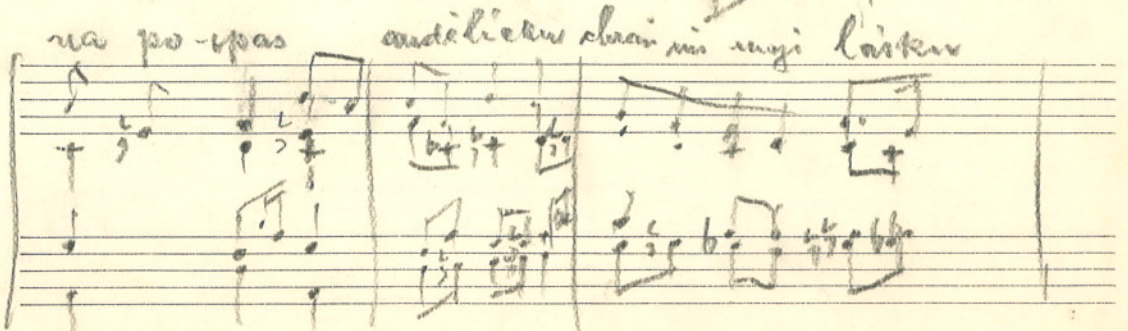 na po-spas andělíčku chraň mi moji lásku